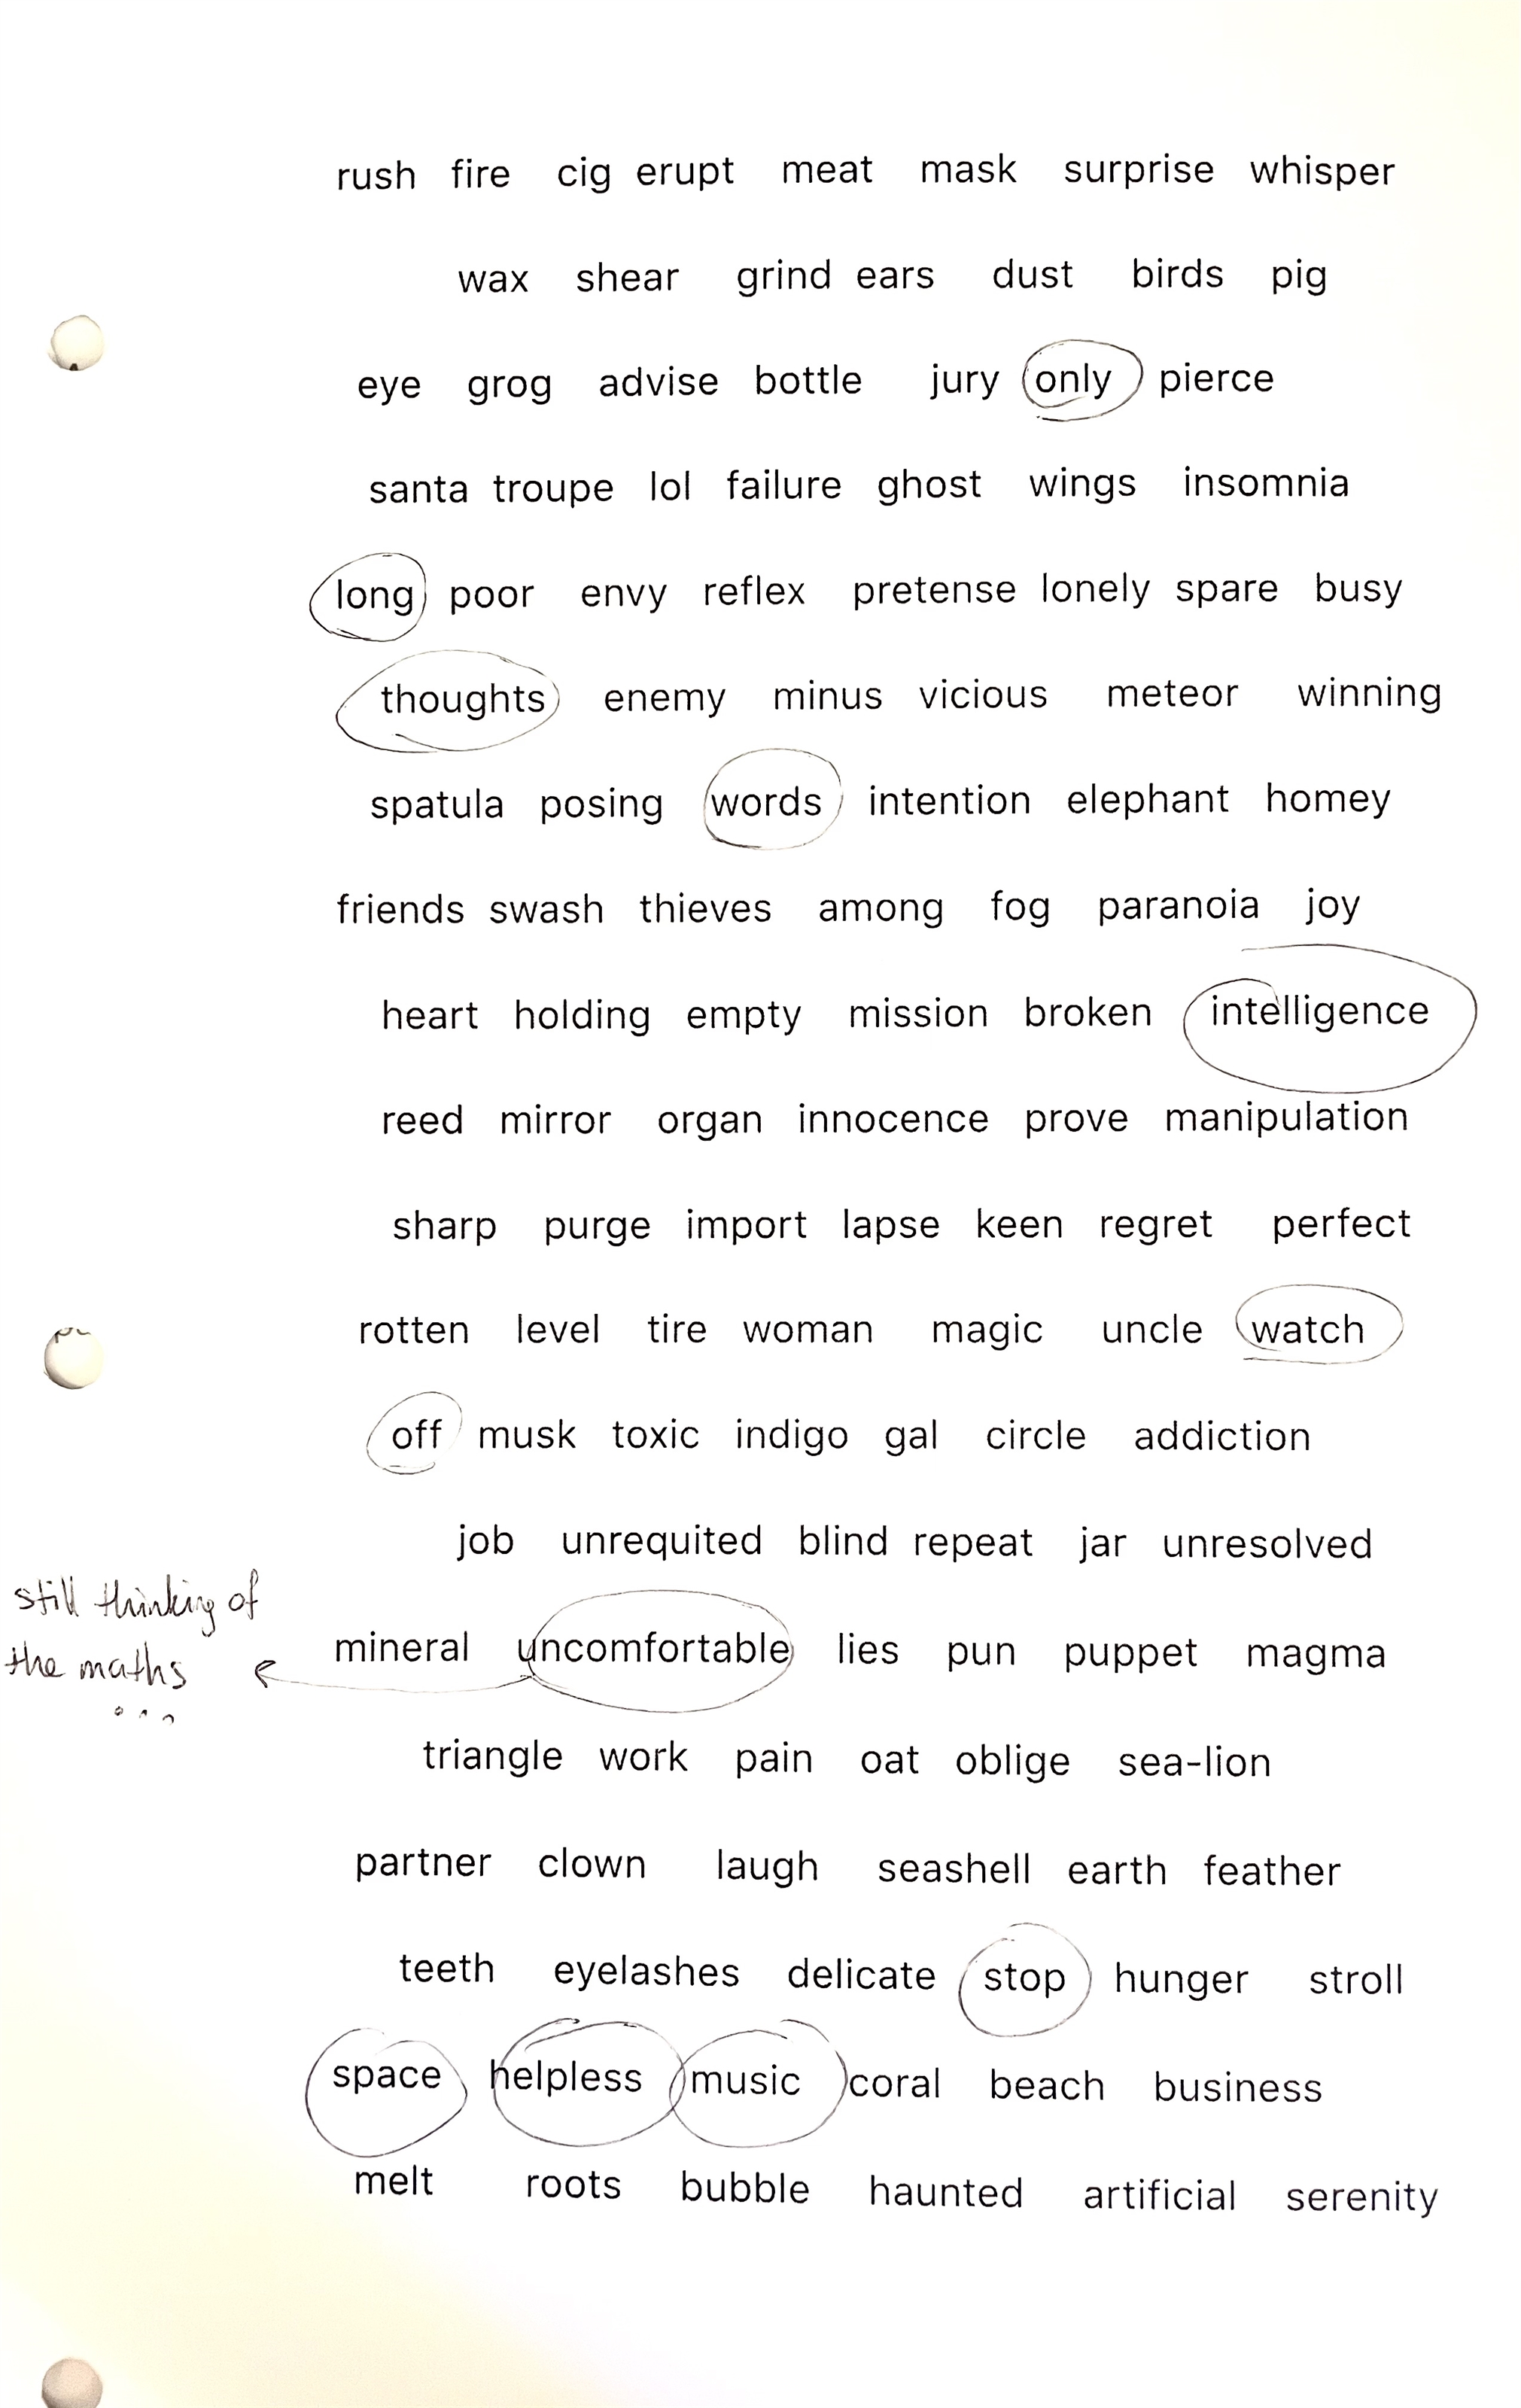 rush fire cig erupt meat mask surprise whisper
wax shear grind ears dust birds pig
eye grog advise bottle jury only pierce
santa troupe lol failure ghost wings insomnia
long poor envy reflex pretense lonely spare busy
thoughts enemy minus vicious meteor winning
spatula posing words intention elephant homey
friends swash thieves among fog paranoia joy
heart holding empty mission broken intelligence
reed mirror organ innocence prove manipulation
sharp purge import lapse keen regret perfect
rotten level tire woman magic uncle watch
off musk toxic indigo gal circle addiction
job unrequited blind repeat jar unresolved
still thinking of
the maths
...
mineral uncomfortable lies pun puppet magma
triangle work pain oat oblige sea-lion
partner clown laugh seashell earth feather
teeth eyelashes delicate stop hunger stroll
space helpless music coral beach business
melt roots bubble haunted artificial serenity